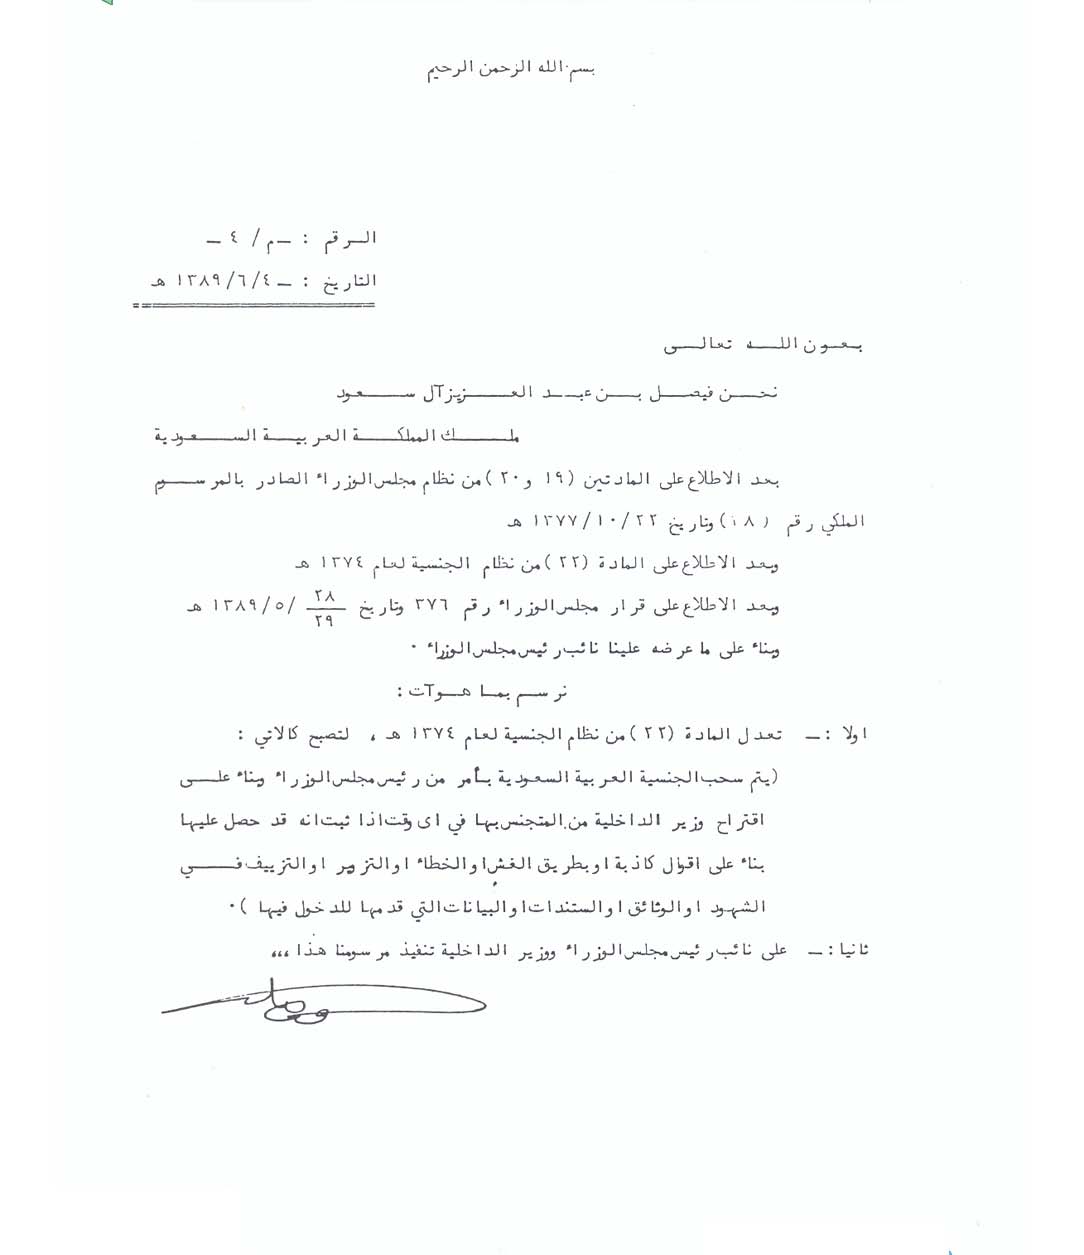 بسم الله الرحمن الرحيم
الرقم : ــ م / ٤ ــ
التاريخ : ــ ١٣٨٩/٦/٤ هـ
بعون الله تعالى
نحن فيصل بن عبد العزيز آل سعود
ملك المملكة العربية السعودية
بعد الاطلاع على المادتين (١٩ و ٢٠) من نظام مجلس الوزراء الصادر بالمرسوم
الملكي رقم (٣٨) وتاريخ ١٣٧٧/١٠/٢٢ هـ
وبعد الاطلاع على المادة (٢٢) من نظام الجنسية لعام ١٣٧٤ هـ
وبعد الاطلاع على قرار مجلس الوزراء رقم ٣٧٦ وتاريخ ٢٨/٢٩ /١٣٨٩/٥ هـ
وبناء على ما عرضه علينا نائب رئيس مجلس الوزراء ٠
نرسم بما هو آت :
اولا :ــ تعدل المادة (٢٢) من نظام الجنسية لعام ١٣٧٤ هـ ، لتصبح كالاتي :
(يتم سحب الجنسية العربية السعودية بأمر من رئيس مجلس الوزراء وبناء على
اقتراح وزير الداخلية من المتجنس بها في اى وقت اذا ثبت انه قد حصل عليها
بناء على اقوال كاذبة او بطريق الغش او الخطاء او التزوير او التزييف في
الشهود او الوثائق او المستندات او البيانات التي قدمها للدخول فيها ) ٠
ثانيا :ــ على نائب رئيس مجلس الوزراء ووزير الداخلية تنفيذ مرسومنا هذا ،،،